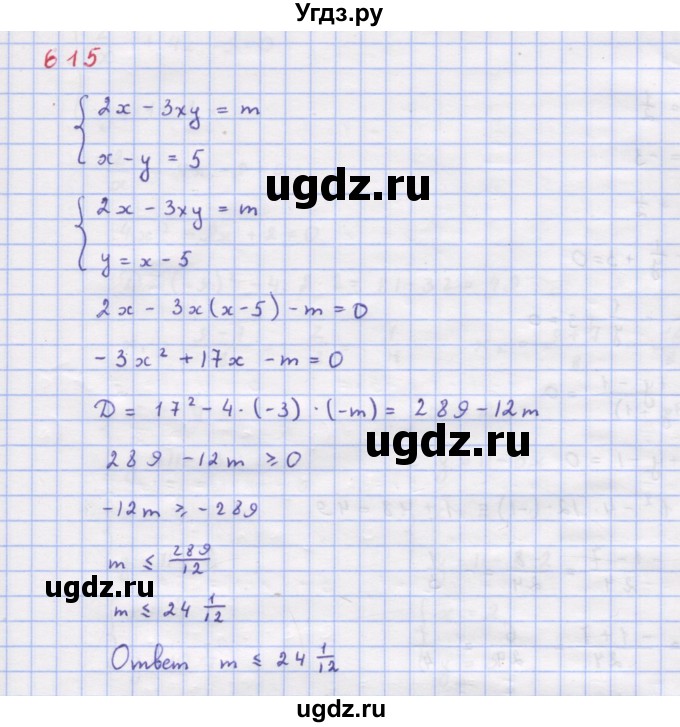 Угдз.ру
615
{ 2x - 3xy = m
x - y = 5
ugdz.ru
{ 2x - 3xy = m
y = x - 5
2x - 3x(x-5) - m = 0
- 3x² + 17x - m = 0
D = 17² - 4 · (-3) · (-m) = 289 - 12m
ugdz.ru
289 - 12m ≥ 0
-12m ≥ -289
m ≤ 289/12
ugdz.ru
m ≤ 24 1/12
Ответ m ≤ 24 1/12
ugdz.ru